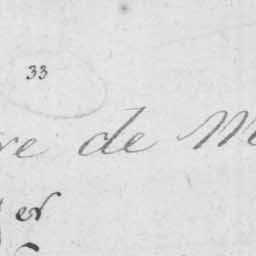 33
re de M
er